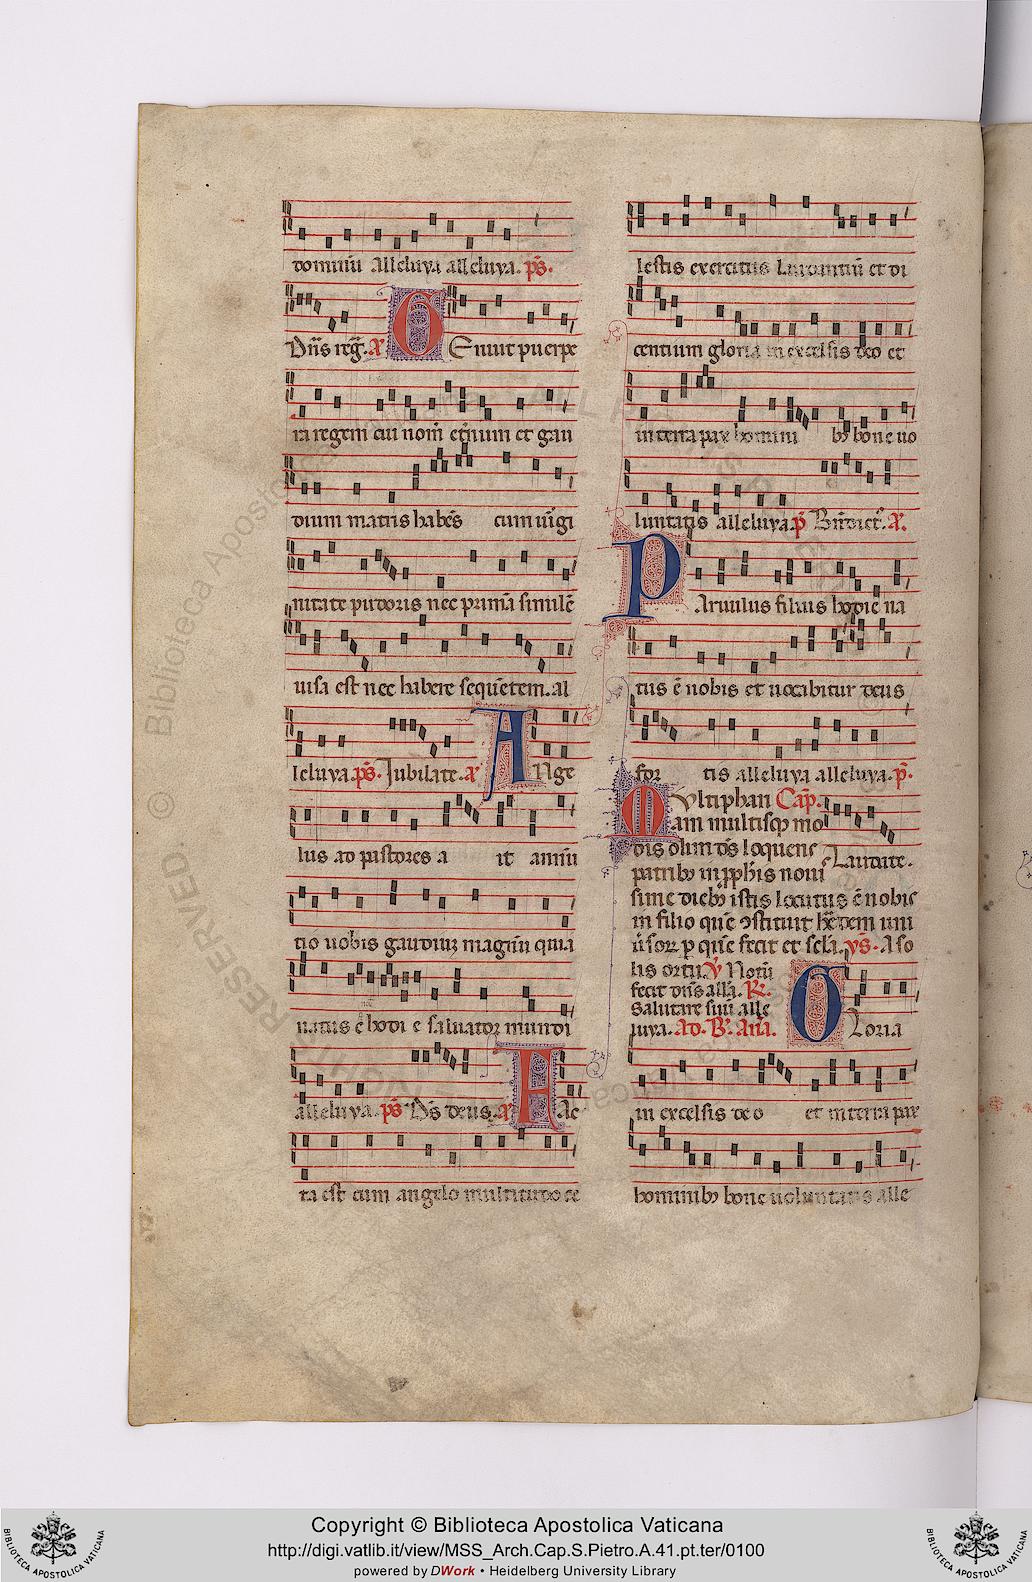 dominū Alleluya alleluya. p̄s.
Dn̄s reg̃. añ G Enuit puerpe
ra regem cui nom̃ et̃num et gau
dium matris habēs cum uirgi
nitate pudoris nec primā similē
uisa est nec habere sequētem. al
leluya. p̄s. Jubilate. añ A Nge
lus ad pastores a it annū
tio uobis gaudiuz magnū quia
natus ē hodi e saluator mundi
alleluya. p̄s Ds̄ deus. añ F Ac
ta est cum angelo multitudo ce
lestis exercitus laudantiū et di
centium gloria in excelsis deo et
in terra pax homini bꝫ bone uo
luntatis alleluya. p̄ Bn̄dict̃. añ.
P Aruulus filius hodie na
tus ē nobis et uocabitur deus
for tis alleluya alleluya. p̄.
M Vltiphari Cap̃.
am multisqꝫ mo
dis olim ds̄ loquens Laudate.
patribꝫ in ꝓphīs noui
sime diebꝫ istis locutus ē nobis
in filio quē ꝯstituit hēdem uni
ũsoꝝ ꝑ quē fecit et scl̄a. ys̄. A so
lis ortu. ℣ Notū
fecit dn̄s all̄a. ℟.
Salutare suū alle
luya. Ad. B̃. Añā. G Loria
in excelsis de o et in terra pax
hominibꝫ bone uoluntatis alle
RESERVED © Biblioteca Apostolica Vaticana
Copyright © Biblioteca Apostolica Vaticana
http://digi.vatlib.it/view/MSS_Arch.Cap.S.Pietro.A.41.pt.ter/0100
powered by DWork • Heidelberg University Library
BIBLIOTECA APOSTOLICA VATICANA
BIBLIOTECA APOSTOLICA VATICANA